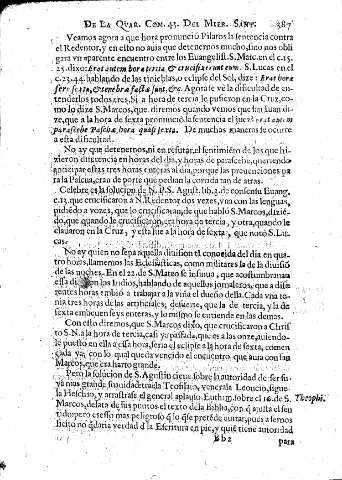 DE LA QVAR. COM. 43. DEL MIER. SANT. 387
Veamos agora a que hora pronunciò Pilatos la sentencia contra
el Redentor, y en esto no aura que detenernos mucho, sino nos obli
gara vn aparente encuentro entre los Euangelist. S. Marc. en el c. 15.
25. dixo: Erat autem hora tertia, & crucifixerunt eum. S. Lucas en el
c. 23. 44. hablando de las tinieblas, o eclipse del Sol, dize: Erat hora
fere sexta, & tenebræ factæ sunt, &c. Agora se vè la dificultad de en-
tenderlos todos tres. Si a hora de tercia le pusieron en la Cruz, co-
mo lo dize S. Marcos, que diremos quando vemos que san Iuan di-
ze, que a la hora de sexta pronunciò la sentencia el juez: erat autem
parasceue Paschæ, hora quasi sexta. De muchas maneras se ocurre
a esta dificultad.
No ay que detenernos, ni en refutar el sentimiẽto de los que hi-
zieron diferencia en horas del dia, y horas de parasceue, queriendo
anticipar estas tres horas enteras al dia, porque las preuenciones pa
ra la Pascua, eran de porte que pedian la corrida tan de atras.
Celebre es la solucion de N. P. S. Agust. lib. 3. de consensu Euang.
c. 13. que crucificaron a N. Redentor dos vezes, vna con las lenguas,
pidiẽdo a vozes, que lo crucificassen, de que hablò S. Marcos, diziẽ-
do, que quando le crucificaron, era hora de tercia, y otra, quando le
clauaron en la Cruz, y esta fue a la hora de sexta, que notò S. Lu-
cas.
No ay quien no sepa aquella diuision tã conocida del dia en qua-
tro horas, llamemos las Eclesiasticas, como militares la de la diuisiõ
de las noches. En el 22. de S. Mateo se insinua, que acostumbrauan
essa diuision los Indios, hablando de aquellos jornaleros, que a dife
rentes horas embiò a trabajar a la viña el dueño della. Cada vna te-
nia tres horas de las artificiales, de suerte, que la de tercia, y la de
sexta embeuen seys enteras, y lo mismo se entiende en las demas.
Con esto diremos, que S. Marcos dixo, que crucificaron a Chris
to S. N. a la hora de tercia, casi ya passada, que es a las onze, auiendo-
le puesto en ella a essa hora, seria el eclipse a la hora de sexta, comen
çada ya, con lo qual queda vencido el encuentro que auia con san
Marcos, que era harto grande.
Pero la solucion de S. Agustin tiene sobre la autoridad de ser su-
ya mas grande suauidad: trada Teofilato, venerala Leoncio, sigue-
la Hesichio, y arrastrase el general aplauso. Euthim. sobre el 16. de S. Theophi.
Marcos, desata de sus puntos el texto de la Biblia, con q̃ ajusta el sen
tido, pero esso es mas peligroso q̃ lo que pretẽde euitar, pues a sernos
licito no q̃daria verdad d̃ la Escritura en pie, y quiẽ tiene autoridad
Bb2 para